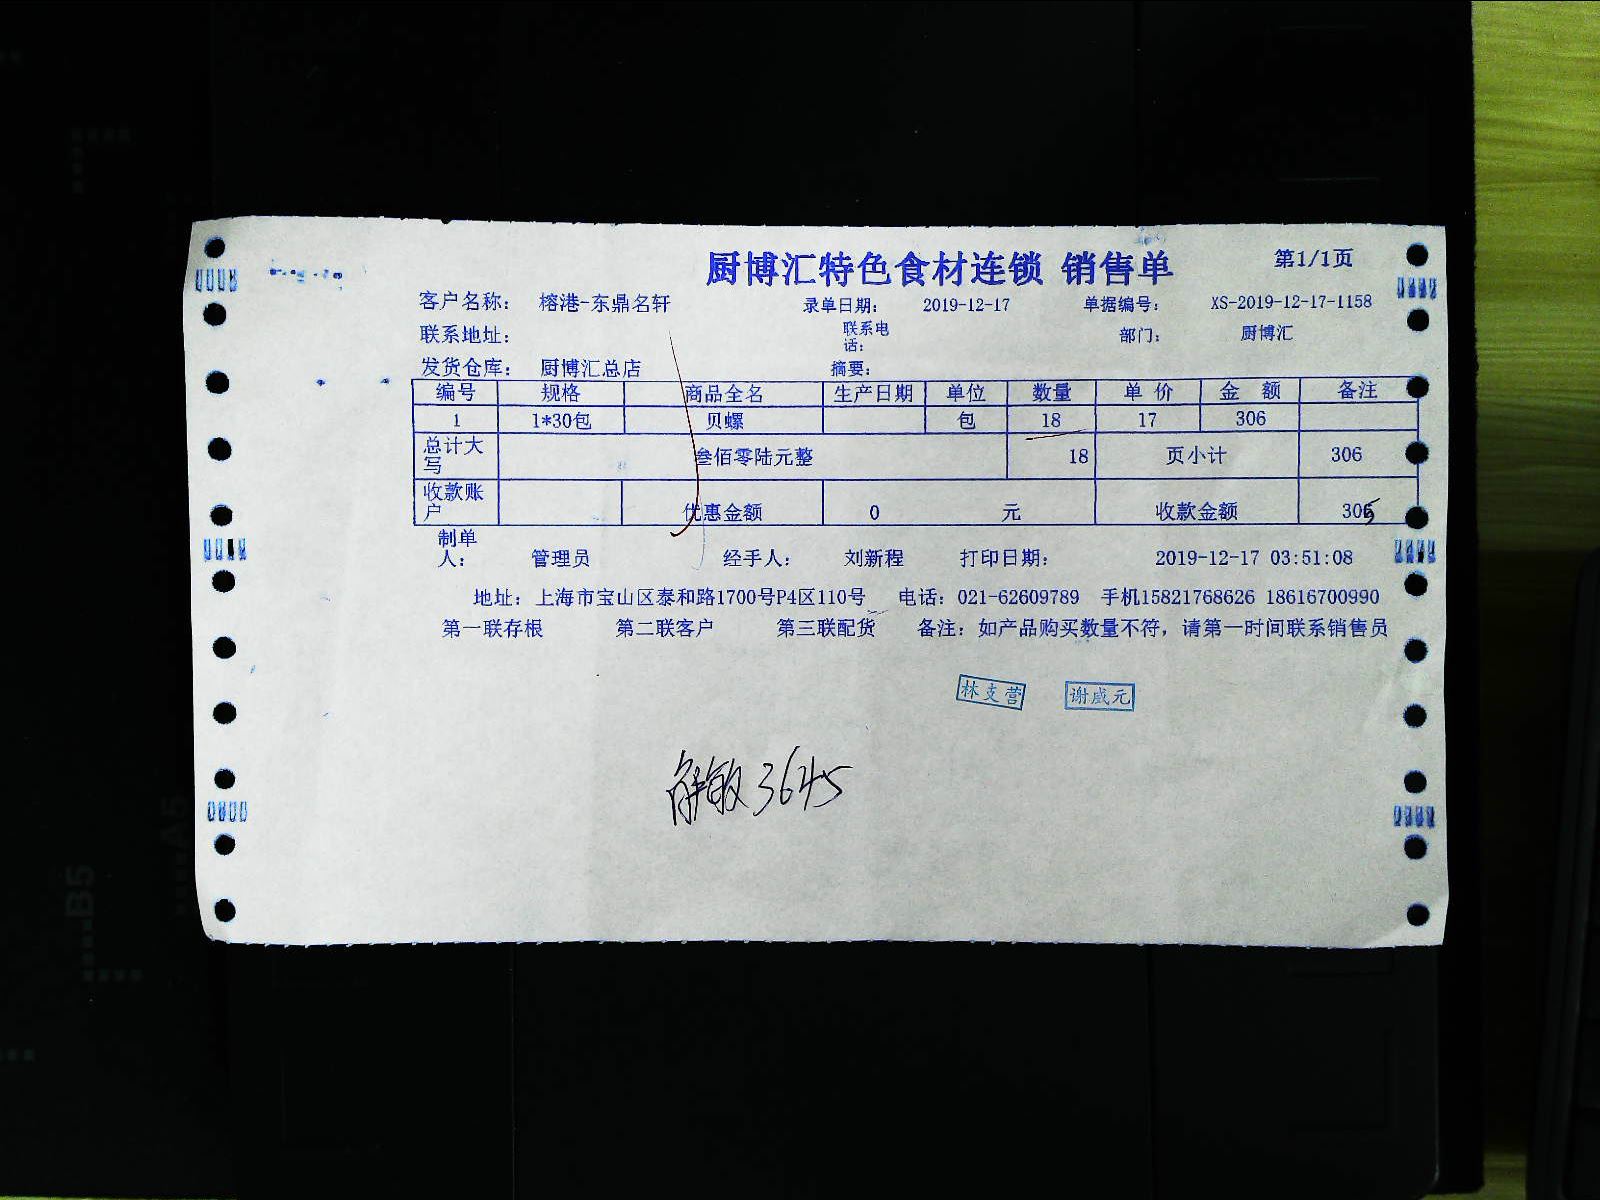 厨博汇特色食材连锁 销售单 第1/1页
客户名称： 榕港-东鼎名轩 录单日期： 2019-12-17 单据编号： XS-2019-12-17-1158
联系地址： 联系电话： 部门： 厨博汇
发货仓库： 厨博汇总店 摘要：
编号 规格 商品全名 生产日期 单位 数量 单 价 金 额 备注
1 1*30包 贝螺 包 18 17 306
总计大写 叁佰零陆元整 18 页小计 306
收款账户 优惠金额 0 元 收款金额 305
制单人： 管理员 经手人： 刘新程 打印日期： 2019-12-17 03:51:08
地址：上海市宝山区泰和路1700号P4区110号 电话：021-62609789 手机15821768626 18616700990
第一联存根 第二联客户 第三联配货 备注：如产品购买数量不符，请第一时间联系销售员
林支营 谢咸元
3645
B5
A5